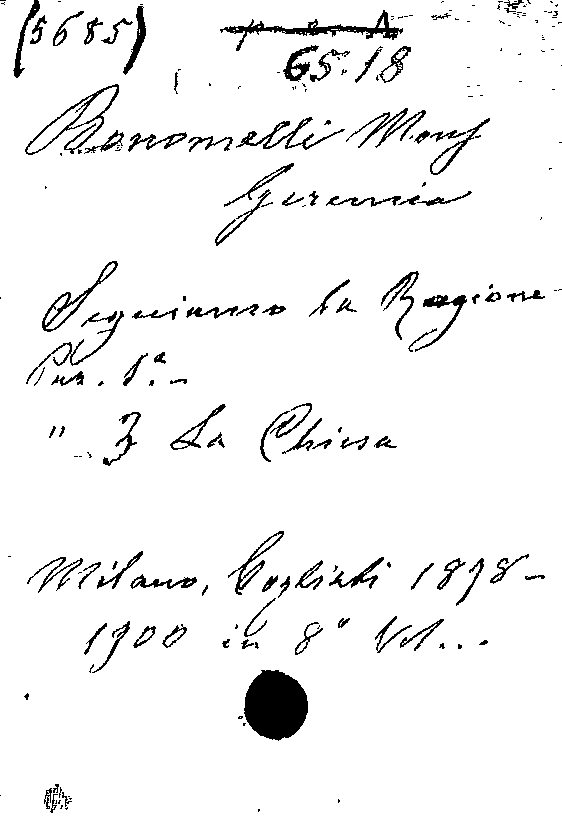 (5685)
65.18
Bonomelli Mons
Geremia
Seguiamo la Ragione
Par. 1ª. -
" 3 La Chiesa
Milano, Cogliati 1898 -
1900 in 8° Vol...